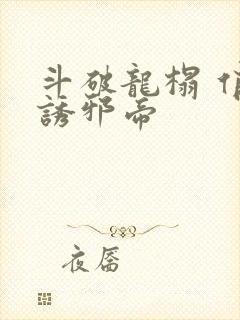 斗破龍榻 俏
誘邪帝
夜唇